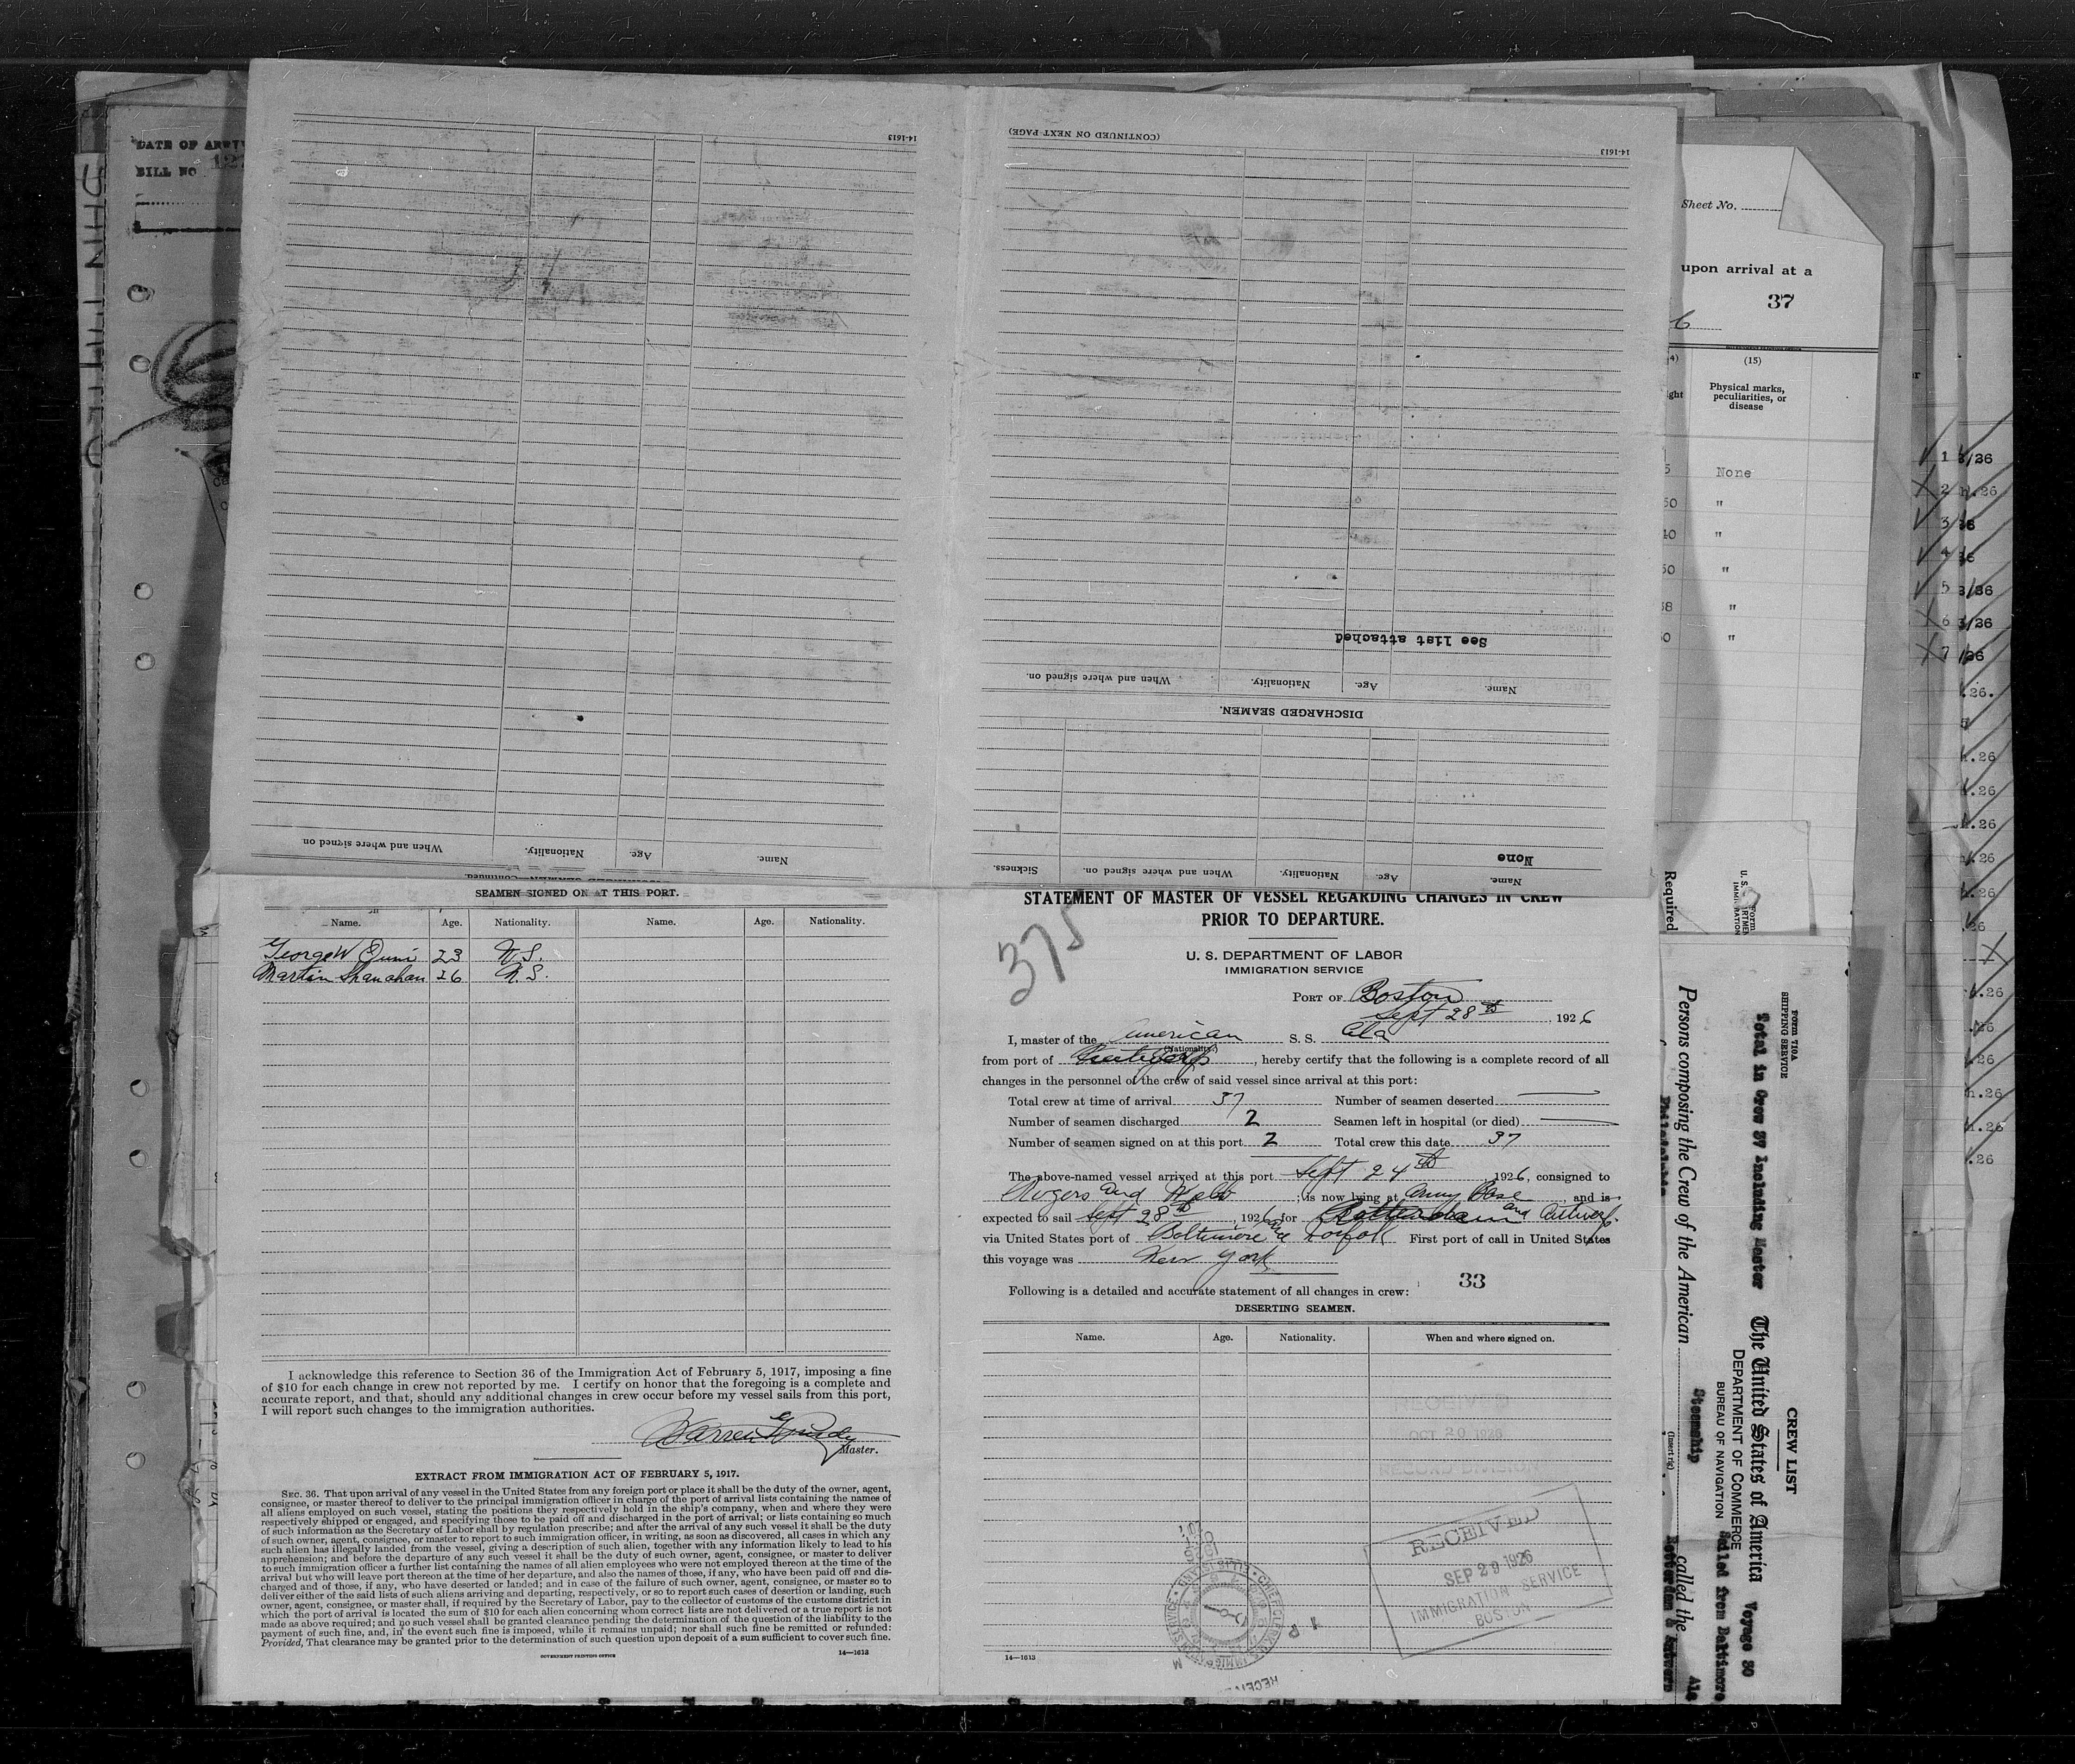 DATE OF
BILL NO
14-1613
(CONTINUED ON NEXT PAGE)
14-1613
See list attached
Name. Age. Nationality. When and where signed on.
DISCHARGED SEAMEN.
None
Name. Age. Nationality. When and where signed on. Sickness.
Name. Age. Nationality. When and where signed on
SEAMEN SIGNED ON AT THIS PORT.
Name. Age. Nationality. Name. Age. Nationality.
George W 23 U.S.
Martin Shanahan 26 U.S.
I acknowledge this reference to Section 36 of the Immigration Act of February 5, 1917, imposing a fine
of $10 for each change in crew not reported by me. I certify on honor that the foregoing is a complete and
accurate report, and that, should any additional changes in crew occur before my vessel sails from this port,
I will report such changes to the immigration authorities.
Warren
Master.
EXTRACT FROM IMMIGRATION ACT OF FEBRUARY 5, 1917.
SEC. 36. That upon arrival of any vessel in the United States from any foreign port or place it shall be the duty of the owner, agent,
consignee, or master thereof to deliver to the principal immigration officer in charge of the port of arrival lists containing the names of
all aliens employed on such vessel, stating the positions they respectively hold in the ship's company, when and where they were
respectively shipped or engaged, and specifying those to be paid off and discharged in the port of arrival; or lists containing so much
of such information as the Secretary of Labor shall by regulation prescribe; and after the arrival of any such vessel it shall be the duty
of such owner, agent, consignee, or master to report to such immigration officer, in writing, as soon as discovered, all cases in which any
such alien has illegally landed from the vessel, giving a description of such alien, together with any information likely to lead to his
apprehension; and before the departure of any such vessel it shall be the duty of such owner, agent, consignee, or master to deliver
to such immigration officer a further list containing the names of all alien employees who were not employed thereon at the time of the
arrival but who will leave port thereon at the time of her departure, and also the names of those, if any, who have been paid off and dis-
charged and of those, if any, who have deserted or landed; and in case of the failure of such owner, agent, consignee, or master so to
deliver either of the said lists of such aliens arriving and departing, respectively, or so to report such cases of desertion or landing, such
owner, agent, consignee, or master shall, if required by the Secretary of Labor, pay to the collector of customs of the customs district in
which the port of arrival is located the sum of $10 for each alien concerning whom correct lists are not delivered or a true report is not
made as above required; and no such vessel shall be granted clearance pending the determination of the question of the liability to the
payment of such fine, and, in the event such fine is imposed, while it remains unpaid; nor shall such fine be remitted or refunded:
Provided, That clearance may be granted prior to the determination of such question upon deposit of a sum sufficient to cover such fine.
GOVERNMENT PRINTING OFFICE
14—1613
STATEMENT OF MASTER OF VESSEL REGARDING CHANGES IN CREW
PRIOR TO DEPARTURE.
375
U. S. DEPARTMENT OF LABOR
IMMIGRATION SERVICE
PORT OF Boston
Sept 28th, 1926
I, master of the American S. S. Ala
(Nationality.)
from port of Antwerp, hereby certify that the following is a complete record of all
changes in the personnel of the crew of said vessel since arrival at this port:
Total crew at time of arrival 37 Number of seamen deserted
Number of seamen discharged 2 Seamen left in hospital (or died)
Number of seamen signed on at this port 2 Total crew this date 37
The above-named vessel arrived at this port Sept 24th, 1926, consigned to
Rogers and Webb; is now lying at Army Base, and is
expected to sail Sept 28th, 1926, for Rotterdam and Antwerp.
via United States port of Baltimore Norfolk First port of call in United States
this voyage was New York
33
Following is a detailed and accurate statement of all changes in crew:
DESERTING SEAMEN.
Name. Age. Nationality. When and where signed on.
RECEIVED
OCT 20 1926
RECORD DIVISION
RECEIVED
SEP 29 1926
IMMIGRATION SERVICE
BOSTON
14—1613
Sheet No.
upon arrival at a
37
(15)
Physical marks,
peculiarities, or
disease
None
"
"
"
"
"
Required
FORM 710A
SHIPPING SERVICE
CREW LIST
The United States of America
DEPARTMENT OF COMMERCE
BUREAU OF NAVIGATION
Total in Crew 37 Including Master
Voyage 30
Sailed from Baltimore
Persons composing the Crew of the American Steamship called the Ala
(Insert rig)
Philadelphia
Rotterdam & Antwerp